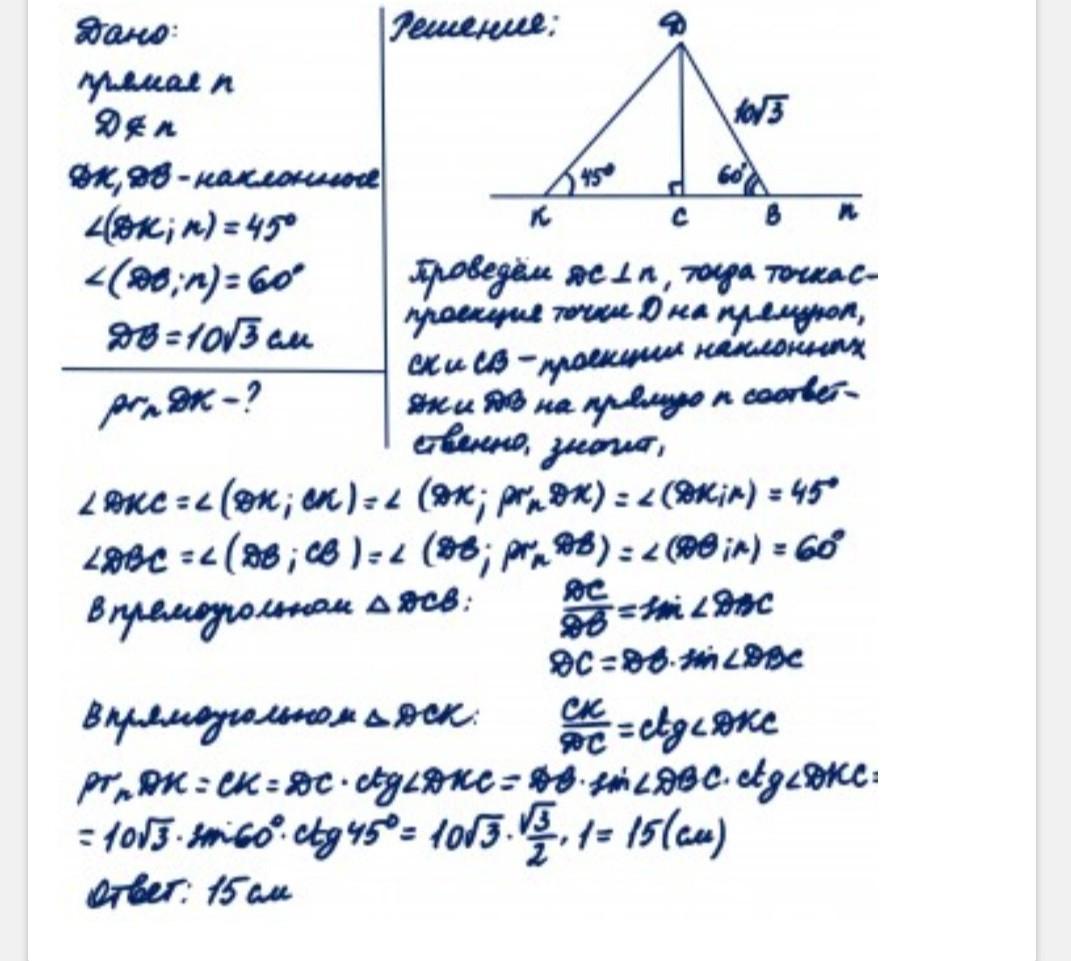 Дано:
прямая n
D ∉ n
DK, DB - наклонные
∠(DK; n) = 45°
∠(DB; n) = 60°
DB = 10√3 см
prₙ DK - ?
Решение:
D
10√3
45°
60°
K
C
B
n
Проведём DC ⊥ n, тогда точка C -
проекция точки D на прямую n,
CK и CB - проекции наклонных
DK и DB на прямую n соответ-
ственно, значит,
∠DKC = ∠(DK; CK) = ∠ (DK; prₙ DK) = ∠(DK; n) = 45°
∠DBC = ∠(DB; CB) = ∠ (DB; prₙ DB) = ∠(DB; n) = 60°
В прямоугольном △ DCB: DC/DB = sin ∠DBC
DC = DB · sin ∠DBC
В прямоугольном △ DCK: CK/DC = ctg ∠DKC
prₙ DK = CK = DC · ctg ∠DKC = DB · sin ∠DBC · ctg ∠DKC =
= 10√3 · sin 60° · ctg 45° = 10√3 · √3/2 · 1 = 15 (см)
Ответ: 15 см